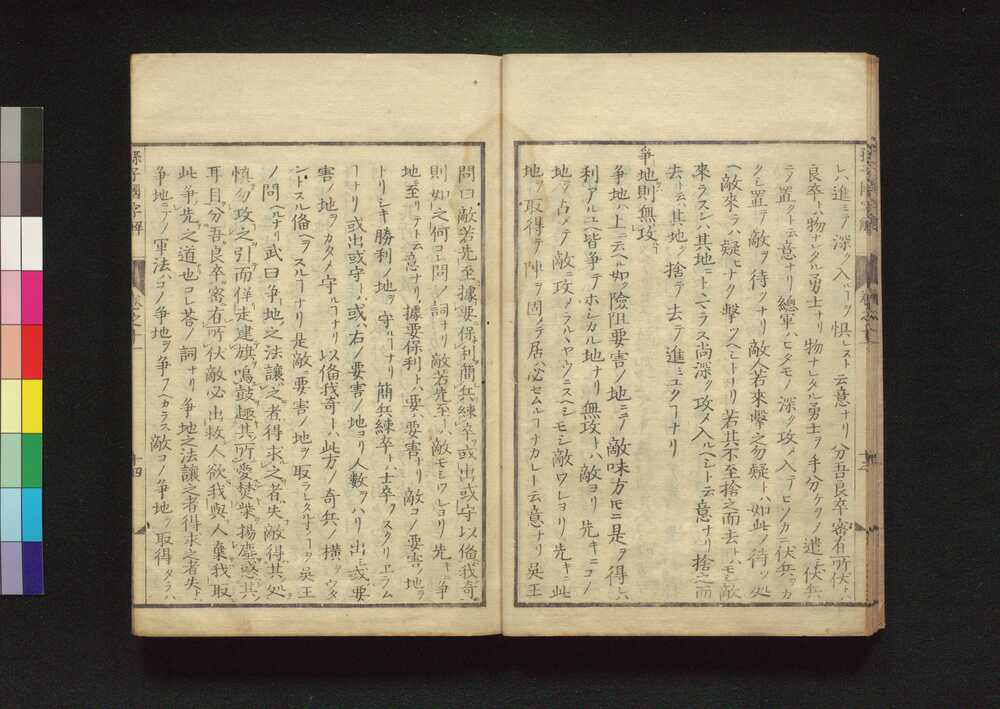 ヒ進ミテ深ク入ルーヲ惧レスト云意ナリ分吾良卒密有所伏トハ
良卒トハ物ナレタル勇士ナリ物ナレタル勇士ヲ手分ケシテ遣ニ伏兵
ニヲ置クト云意ナリ總軍ハヒタモノ深ク攻メ入テヒソカニ伏兵ヲカ
クシ置テ敵ヲ待ツナリ敵人若來擊之勿疑トハ如此ノ待ツ処
ヘ敵來ラハ疑ヒナク擊ツヘシトリ若其不至捨之而去トハモシ敵
來ラスンハ其地ニトヽマラス尚深ク攻メ入ルヘシト云意ナリ捨之而
去ト云ハ其地ヲ捨テ去テ進ミユクーナリ
爭地則無攻
爭地ハ上ニ云ヘル如ク險阻要害ノ地ニテ敵味方モニ是ヲ得レハ
利アルユヘ皆爭テホシカル地ナリ無攻トハ敵ヨリ先キニコノ
地ヲ占メテ敵ニ攻メラルヽヤウニスヘシモシ敵ワレヨリ先キニ此
地ヲ取得テ陣ヲ固メテ居ハ必セムルーナカレト云意ナリ吳王
問曰敵若先至據要保利簡兵練卒或出或守以俻我奇
則如之何コレ問ノ詞ナリ敵若先至トハ敵モシワレヨリ先ニ爭
地ニ至リテト云意ナリ據要保利トハ要ハ要害ナリ敵コノ要害ノ地ヲ
トリシキ勝利ノ地ヲ守ルーナリ簡兵練卒トハ士卒ヲスクリエラム
ーナリ或出或守トハ或ハ右ノ要害ノ地ヨリ人數ヲハリ出シ或ハ要
害ノ地ヲカタメ守ルーナリ以俻我奇トハ此方ノ奇兵ノ横ヲウタ
ントスルヲ俻ヘヲスルーナリ是敵ニ要害ノ地ヲ取ラレタルトキーヲ吳王
ノ問ヘルナリ武曰爭地之法讓之者得求之者失敵得其処
慎勿攻之引而佯走建旗鳴鼓趣其所愛焚柴揚塵惑其
耳目分吾良卒密有所伏敵必出救人欲我與人棄我取
此爭先之道也コレ荅ノ詞ナリ爭地之法讓之者得求之者失トハ
爭地ニテノ軍法ハコノ爭地ヲ爭フヘカラス敵コノ爭地ヲ取得タラハ
孫子國字解
卷之十一
十四